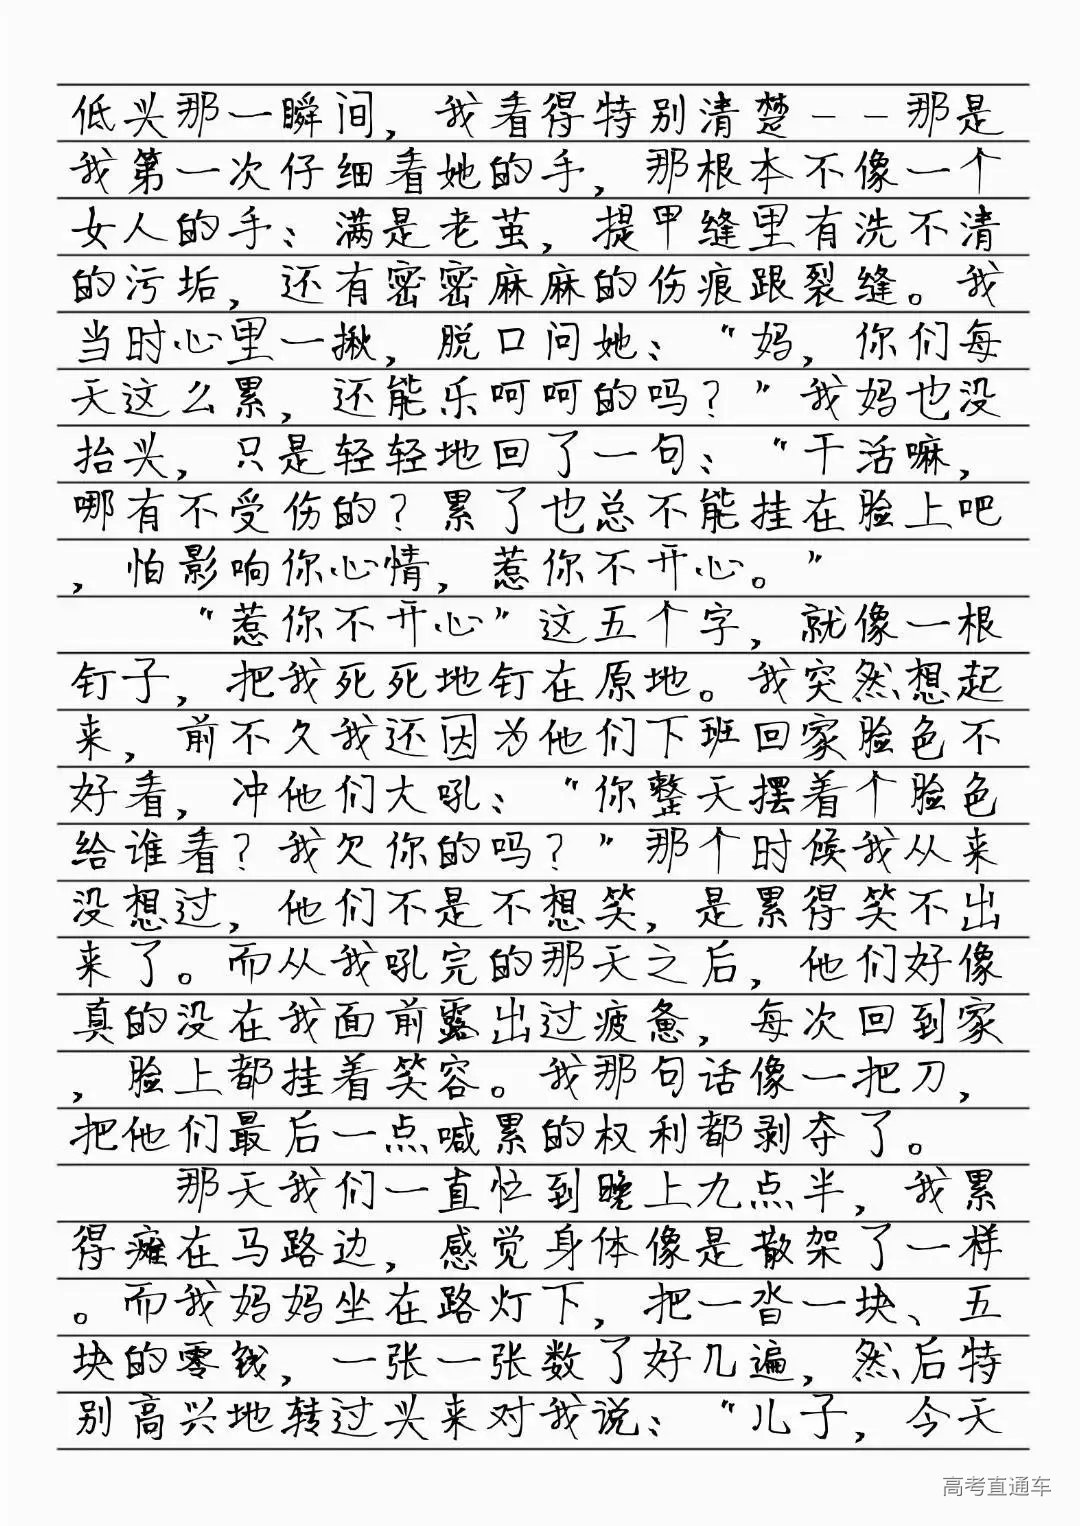 低头那一瞬间，我看得特别清楚－－那是
我第一次仔细看她的手，那根本不像一个
女人的手：满是老茧，提甲缝里有洗不清
的污垢，还有密密麻麻的伤痕跟裂缝。我
当时心里一揪，脱口问她：“妈，你们每
天这么累，还能乐呵呵的吗？”我妈也没
抬头，只是轻轻地回了一句：“干活嘛，
哪有不受伤的？累了也总不能挂在脸上吧
，怕影响你心情，惹你不开心。”
“惹你不开心”这五个字，就像一根
钉子，把我死死地钉在原地。我突然想起
来，前不久我还因为他们下班回家脸色不
好看，冲他们大吼：“你整天摆着个脸色
给谁看？我欠你的吗？”那个时候我从来
没想过，他们不是不想笑，是累得笑不出
来了。而从我吼完的那天之后，他们好像
真的没在我面前露出过疲惫，每次回到家
，脸上都挂着笑容。我那句话像一把刀，
把他们最后一点喊累的权利都剥夺了。
那天我们一直忙到晚上九点半，我累
得瘫在马路边，感觉身体像是散架了一样
。而我妈妈坐在路灯下，把一沓一块、五
块的零钱，一张一张数了好几遍，然后特
别高兴地转过头来对我说：“儿子，今天
高考直通车